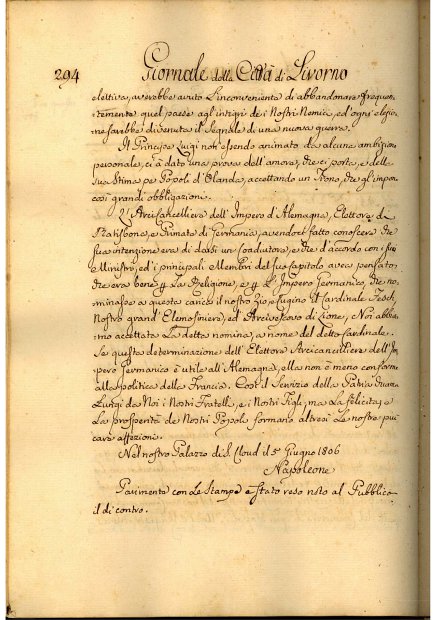 294 Giornale della Città di Livorno
elettiva, averebbe avuto l'inconveniente di abbandonare frequen-
temente quel paese agl'intrighi de i Nostri Nemici, ed ogni elezio-
ne sarebbe divenuta il segnale di una nuova guerra.
Il Principe Luigi non essendo animato da alcuna ambizione
personale, ci à dato una prova dell'amore, che ci porta, e della
sua stima pe' Popoli d'Olanda, accettando un Trono, che gl'impon
così grandi obbligazioni.
L'Arcicancelliere dell'Impero d'Alemagna, Elettore di
Ratisbona, e Primate di Germania, avendoci fatto conoscere che
sua intenzione era di darsi un Coadiutore, e che d'accordo con i suoi
Ministri, ed i principali Membri del suo Capitolo aveva pensato,
che era bene p la Religione, e p l'Impero Germanico, che no-
minasse a questa carica il nostro Zio, e Cugino il Cardinale Fesch,
Nostro grand'Elemosiniere, ed Arcivescovo di Lione, Noi abbia-
mo accettata la detta nomina, a nome del detto Cardinale.
Se questa determinazione dell'Elettore Arcicancelliere dell'Im-
pero Germanico è utile all'Alemagna, ella non è meno conforme
alla politica della Francia. Così il Servizio della Patria chiama
lungi da Noi i Nostri Fratelli, e i Nostri Figli, ma la felicità, e
la prosperità de Nostri Popoli formano altresì le nostre più
care affezioni.
Nel nostro Palazzo di S. Cloud il 5 Giugno 1806
Napoleone
Parimente con le Stampe è stato reso noto al Pubblico
il di contro.